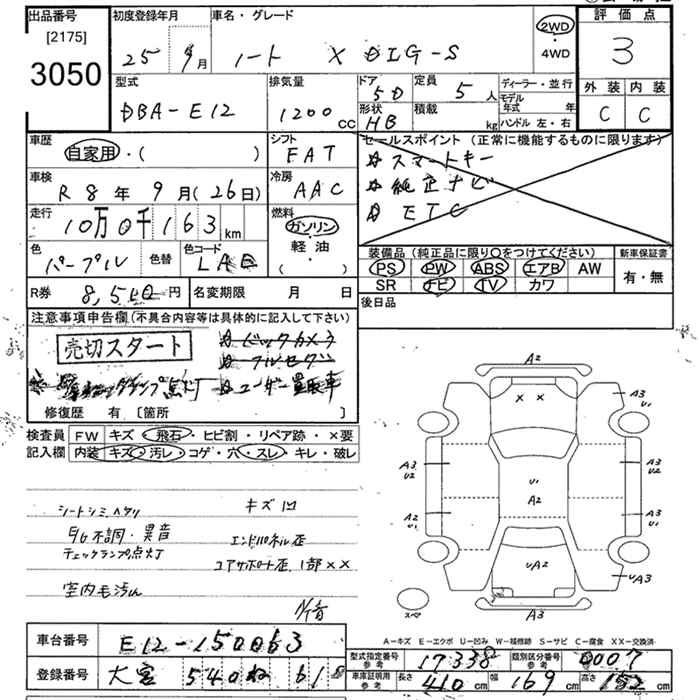 出品番号
[2175]
3050
初度登録年月
25年9月
車名・グレード
ノート X DIG-S
2WD
・
4WD
評価点
3
外装 内装
C C
型式
DBA-E12
排気量
1200cc
ドア 5D
形状 HB
定員 5人
積載 kg
ディーラー・並行
モデル年式 年
ハンドル 左・右
車歴
自家用・( )
シフト
FAT
車検
R8年9月(26日)
冷房
AAC
走行
10万0千163km
燃料
ガソリン
・
軽油
・
( )
色
パープル
色替
色コード
LAE
R券 8,510円
名変期限 月 日
セールスポイント(正常に機能するものに限ります)
スマートキー
純正ナビ
ETC
装備品(純正品に限り○をつけてください)
PS PW ABS エアB AW
SR ナビ TV カワ
新車保証書
有・無
後日品
注意事項申告欄(不具合内容等は具体的に記入して下さい)
売切スタート
バックカメラ
フルセグ
ランプ点灯
ユーザー買取車
修復歴 有 〔箇所 〕
検査員記入欄
FW キズ・飛石・ヒビ割・リペア跡・×要
内装 キズ・汚レ・コゲ・穴・スレ・キレ・破レ
シートシミ、ヘタリ
キズ凹
E/G不調・異音
エンドパネル歪
チェックランプ点灯
コアサポート歪、1部××
室内毛汚れ
A2
× ×
A3
U1
A3
U2
A2
U1
U1
A2
A3
U2
A3
U1
UA2
UA3
A3
スペア
A-キズ E-エクボ U-凹み W-補修跡 S-サビ C-腐食 XX-交換済
車台番号 E12-150063
登録番号 大宮 540 ね 618
型式指定番号 参考 17338
類別区分番号 参考 0007
車庫証明用 参考 長さ 410cm 幅 169cm 高さ 152cm